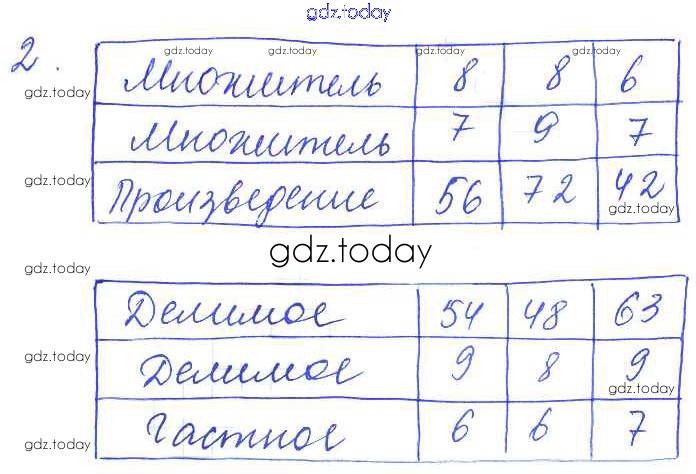 gdz.today
2.
gdz.today gdz.today gdz.today gdz.today
Множитель 8 8 6
gdz.today
Множитель 7 9 7
gdz.today
Произведение 56 72 42
gdz.today
gdz.today
gdz.today
Делимое 54 48 63
gdz.today
Делимое 9 8 9
gdz.today
Частное 6 6 7
gdz.today